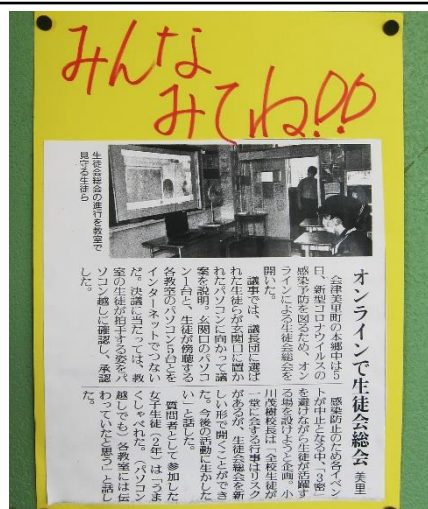 みんな
みてね!!
生徒会総会の進行を教室で
見守る生徒ら
オンラインで生徒会総会 美里
会津美里町の本郷中は5
日、新型コロナウイルスの
感染予防を図るため、オン
ラインによる生徒会総会を
開いた。
議事では、議長団に選ば
れた生徒らが玄関口に置か
れたパソコンに向かって議
案を説明。玄関口のパソコ
ン1台と、生徒が傍聴する
各教室のパソコン5台とを
インターネットでつない
だ。決議に当たっては、教
室の生徒が拍手する姿をパ
ソコン越しに確認し、承認
した。
感染防止のため各イベン
トが中止となる中、「3密」
を避けながら生徒が活躍す
る場を設けようと企画。小
川茂樹校長は「全校生徒が
一堂に会する行事はリスク
があるが、生徒会総会を新
しい形で開くことができ
た。今後の活動に生かした
い」と話した。
質問者として参加した
女子生徒(2年)は「うま
くしゃべれた。(パソコン
越しでも)各教室には伝
わっていたと思う」と話し
た。